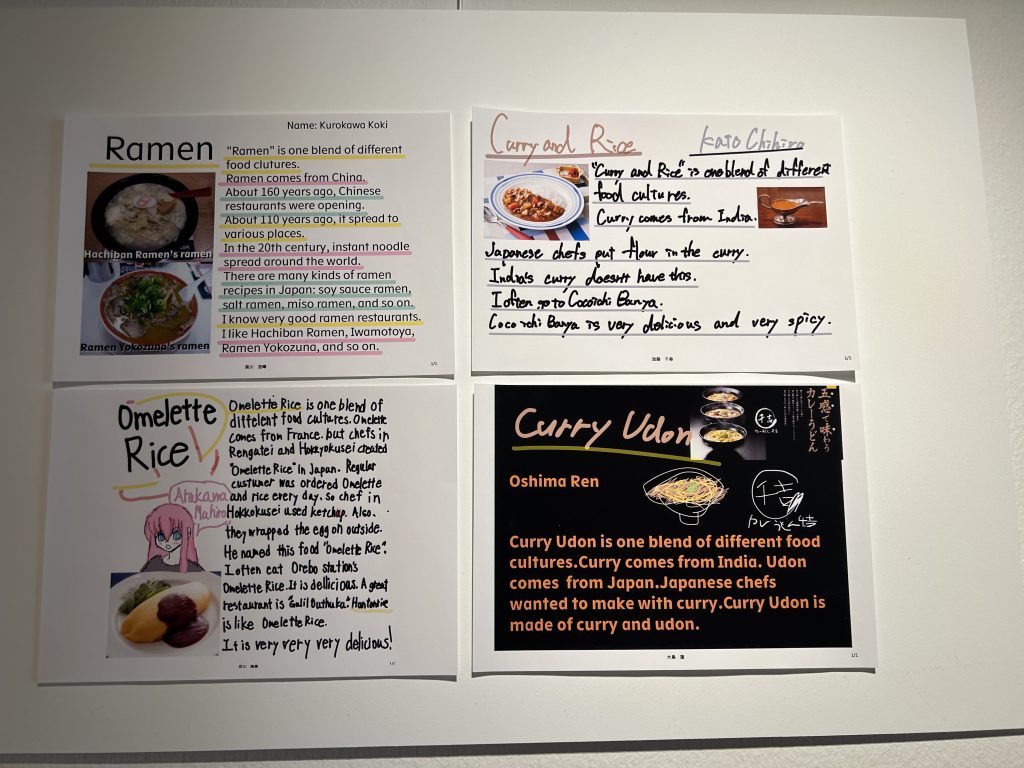 Name: Kurokawa Koki
Ramen
"Ramen" is one blend of different
food clutures.
Ramen comes from China.
About 160 years ago, Chinese
restaurants were opening.
About 110 years ago, it spread to
various places.
In the 20th century, instant noodle
spread around the world.
There are many kinds of ramen
recipes in Japan: soy sauce ramen,
salt ramen, miso ramen, and so on.
I know very good ramen restaurants.
I like Hachiban Ramen, Iwamotoya,
Ramen Yokozuna, and so on.
Hachiban Ramen's ramen
Ramen Yokozuna's ramen
1/1
Curry and Rice
Kato Chihiro
"Curry and Rice" is one blend of different
food cultures.
Curry comes from India.
Japanese chefs put flour in the curry.
India's curry doesn't have this.
I often go to Cocoichi Banya.
Cocoichi Banya is very delicious and very spicy.
加藤 千尋
1/1
Omelette
Rice
Arakawa
Mahiro
Omelette Rice is one blend of
different food cultures. Omelette
comes from France. but chefs in
Rengatei and Hokkyokusei created
"Omelette Rice" in Japan. Regular
custumer was ordered Omelette
and rice every day. So chef in
Hokkokusei used ketchup. Also.
they wrapped the egg on outside.
He named this food "Omelette Rice".
I often eat Orebo station's
Omelette Rice. It is dellicious. A great
restaurant is "Gulil Outhuka". Hantonrice
is like Omelette Rice.
It is very very very delicious!
1/1
Curry Udon
五感で味わう
カレーうどん
千吉
Oshima Ren
千吉
Curry Udon is one blend of different food
cultures.Curry comes from India. Udon
comes from Japan.Japanese chefs
wanted to make with curry.Curry Udon is
made of curry and udon.
大島 蓮
1/1